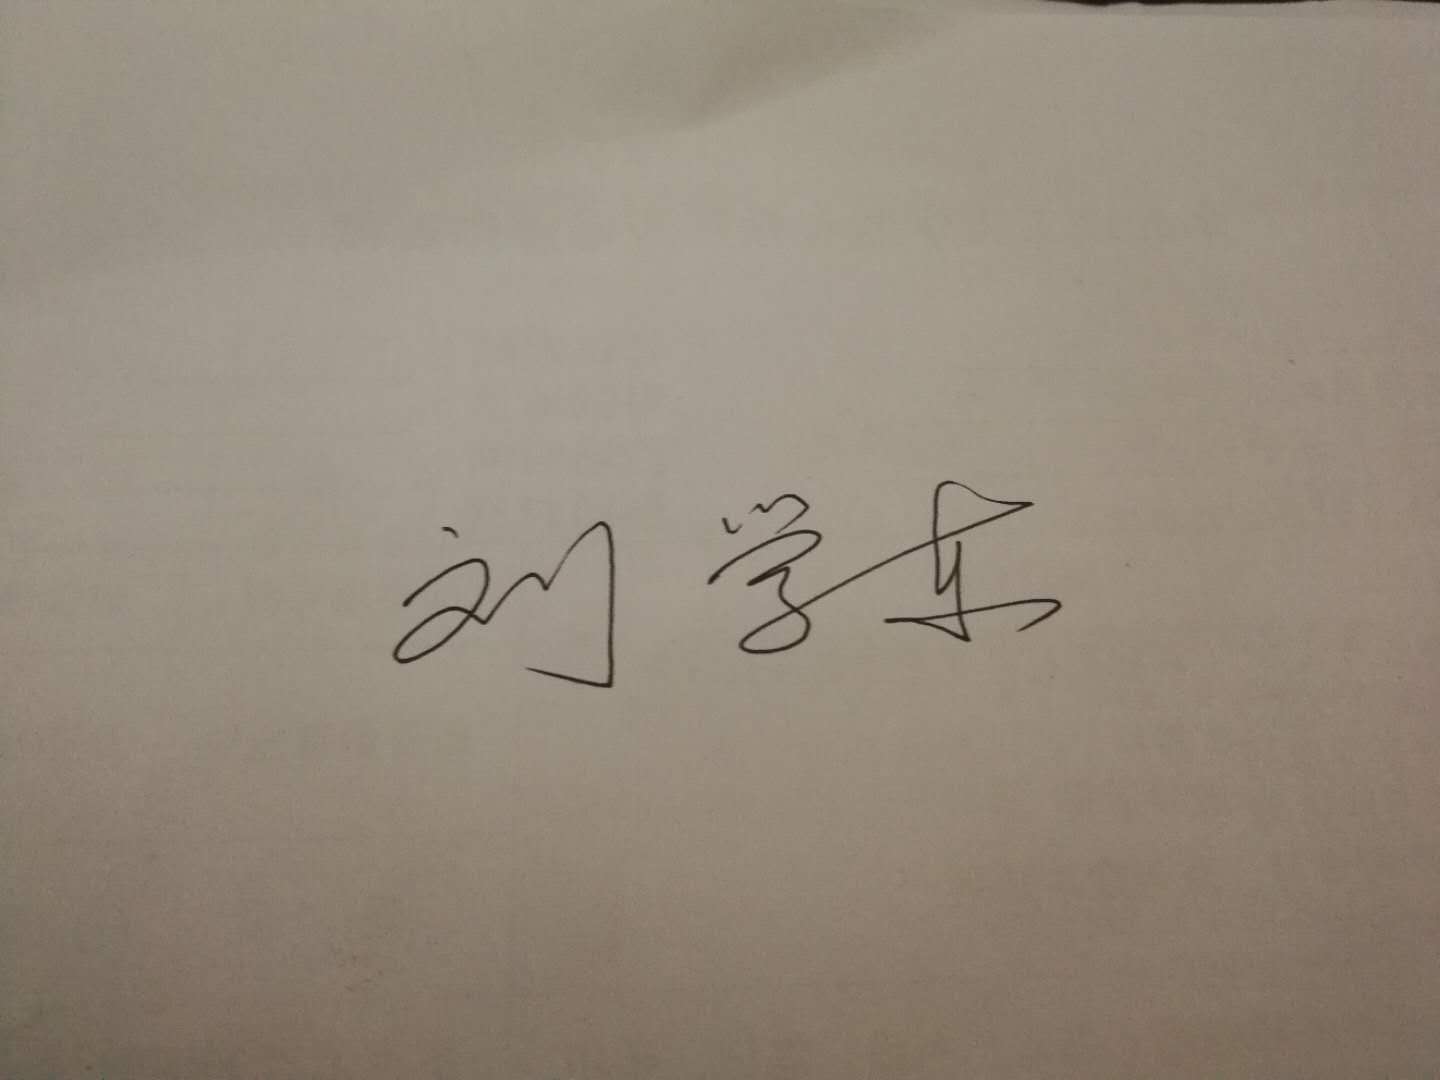 刘学东